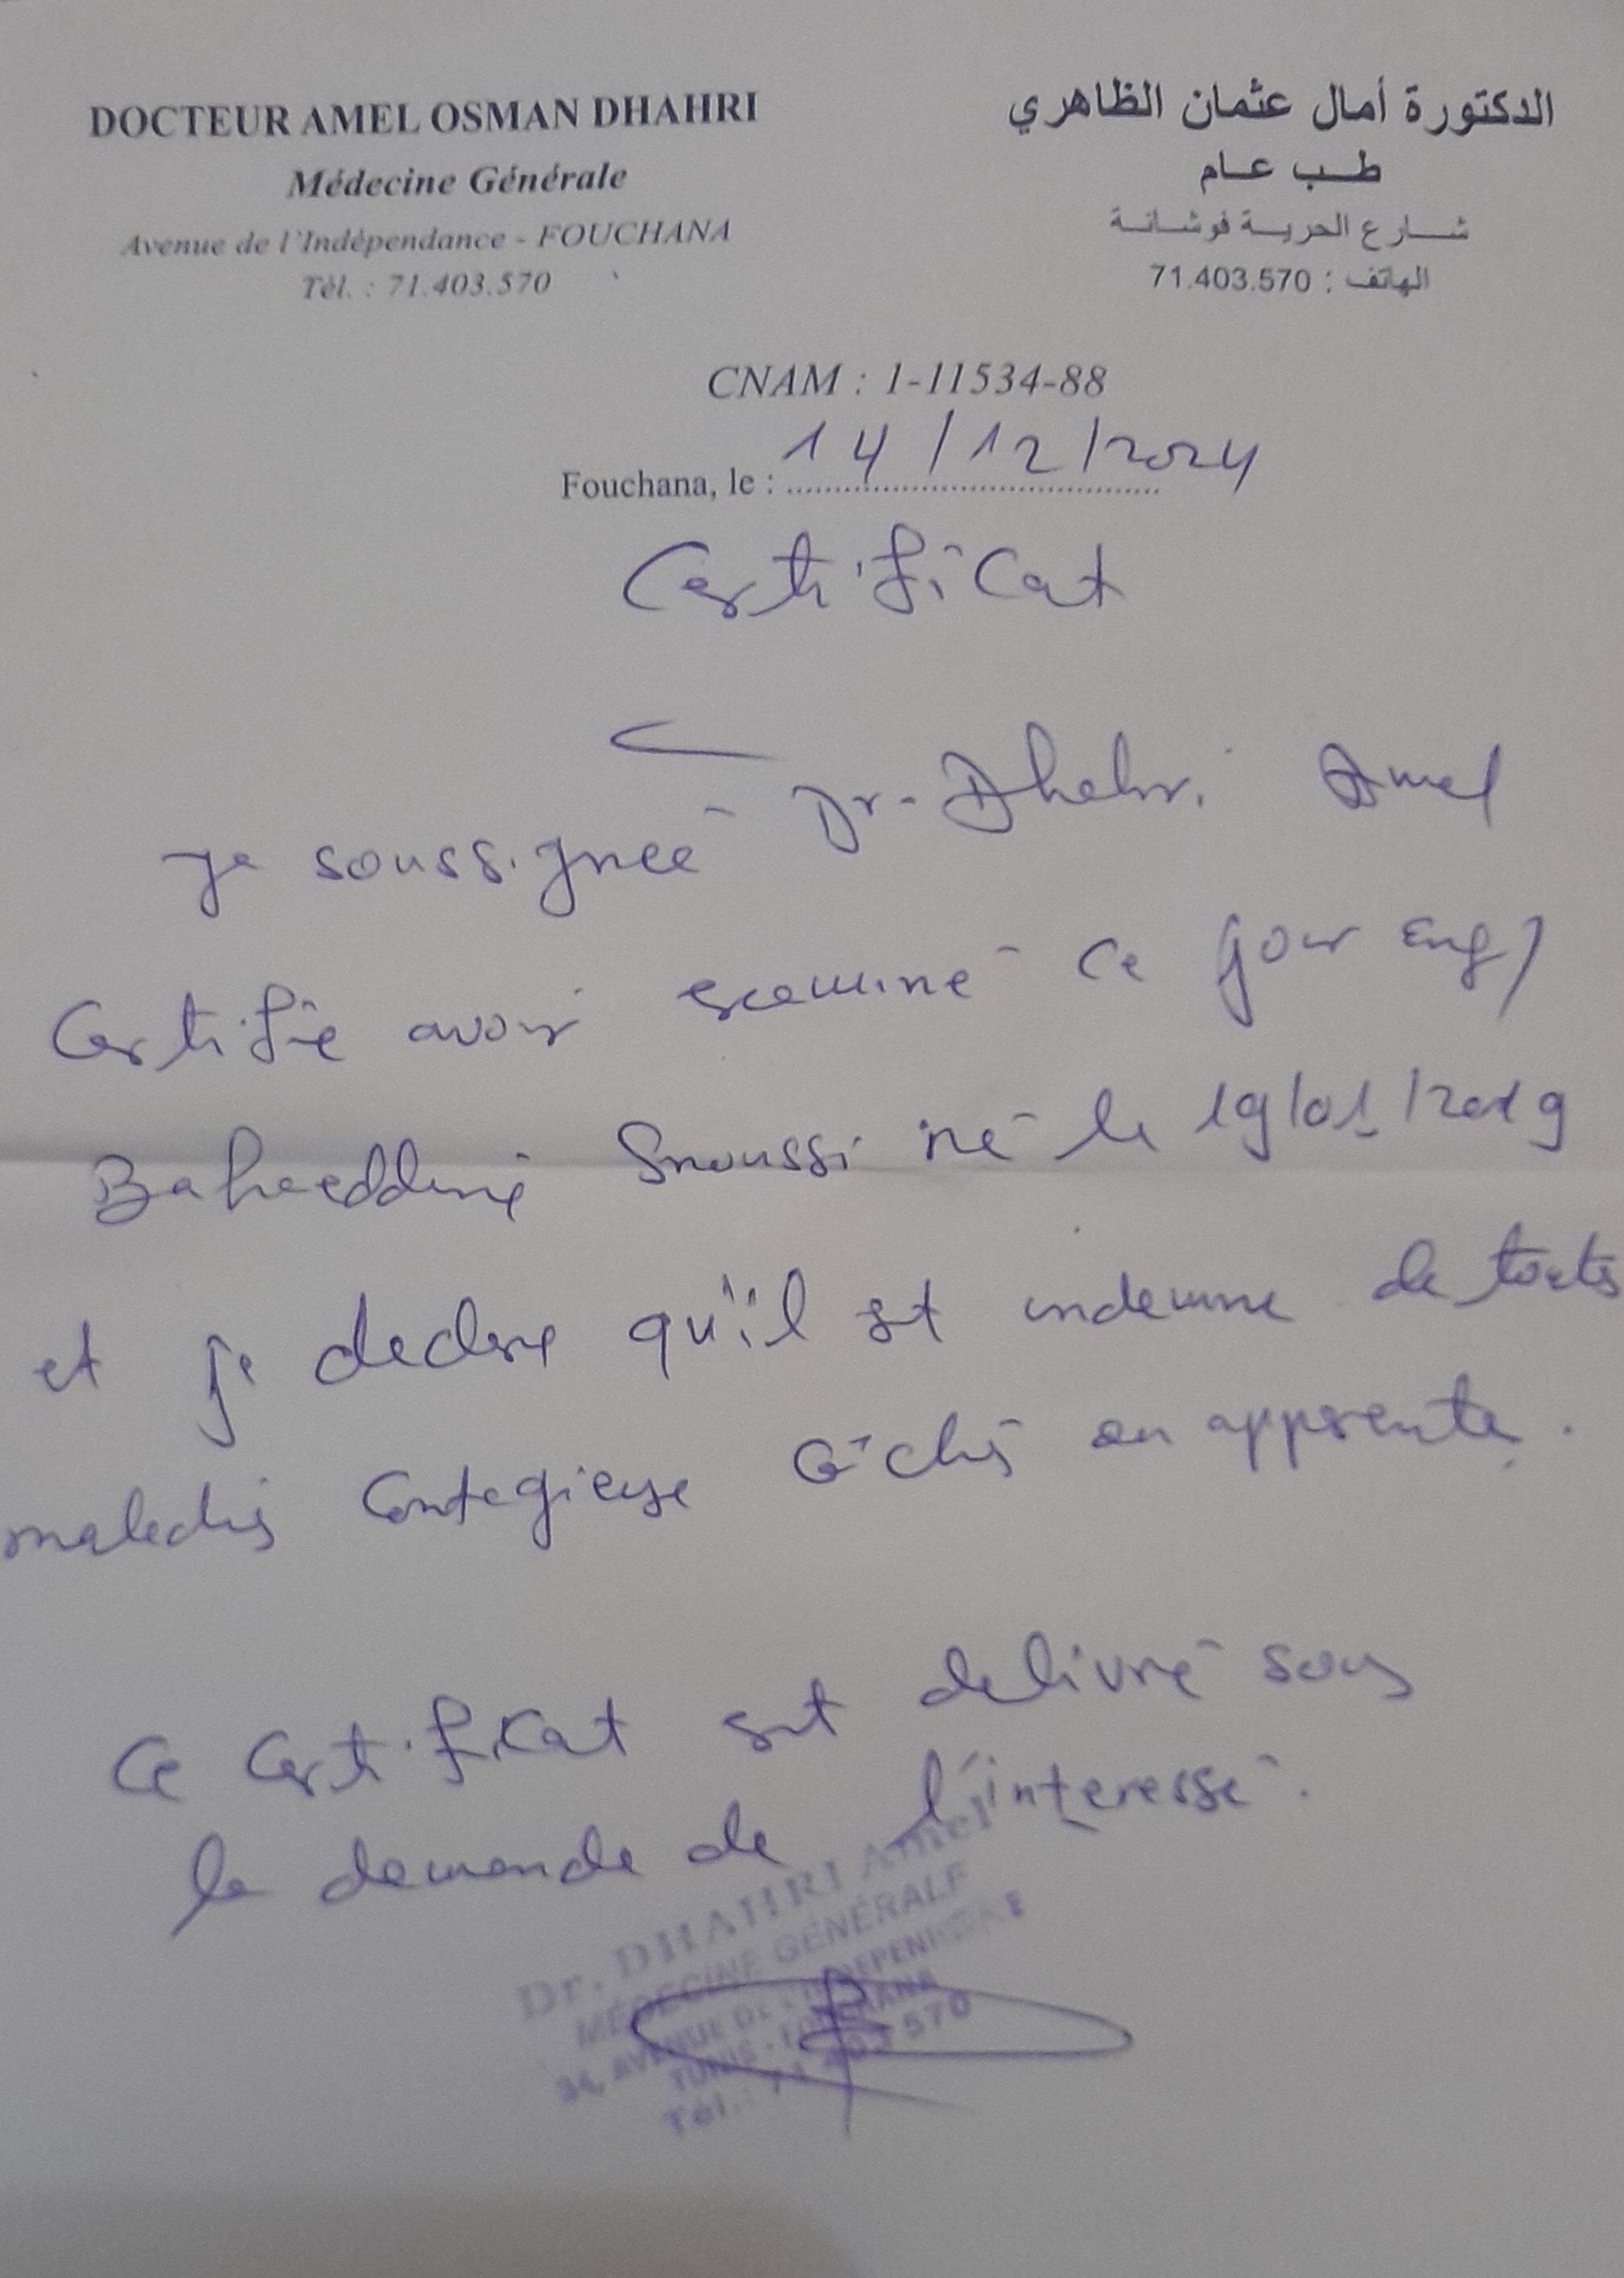 DOCTEUR AMEL OSMAN DHAHRI
Médecine Générale
Avenue de l'Indépendance - FOUCHANA
Tél. : 71.403.570
الدكتورة أمال عثمان الظاهري
طب عام
شارع الحرية فوشانة
الهاتف : 71.403.570
CNAM : 1-11534-88
Fouchana, le : 14/12/2024
Certificat
Je soussignée Dr. Dhahri Amel
Certifie avoir examiné ce jour
Bahaeddine Snoussi né le 19/01/2019
et je declare qu'il est indemne de toutes
maladies contagieuse cachés ou apparente.
Ce certificat est delivré sous
la demande de l'interessé.
Dr. DHAHRI Amel
MÉDECINE GÉNÉRALE
34, AVENUE DE L'INDEPENDANCE
TUNIS - FOUCHANA
Tél.: 71 403 570